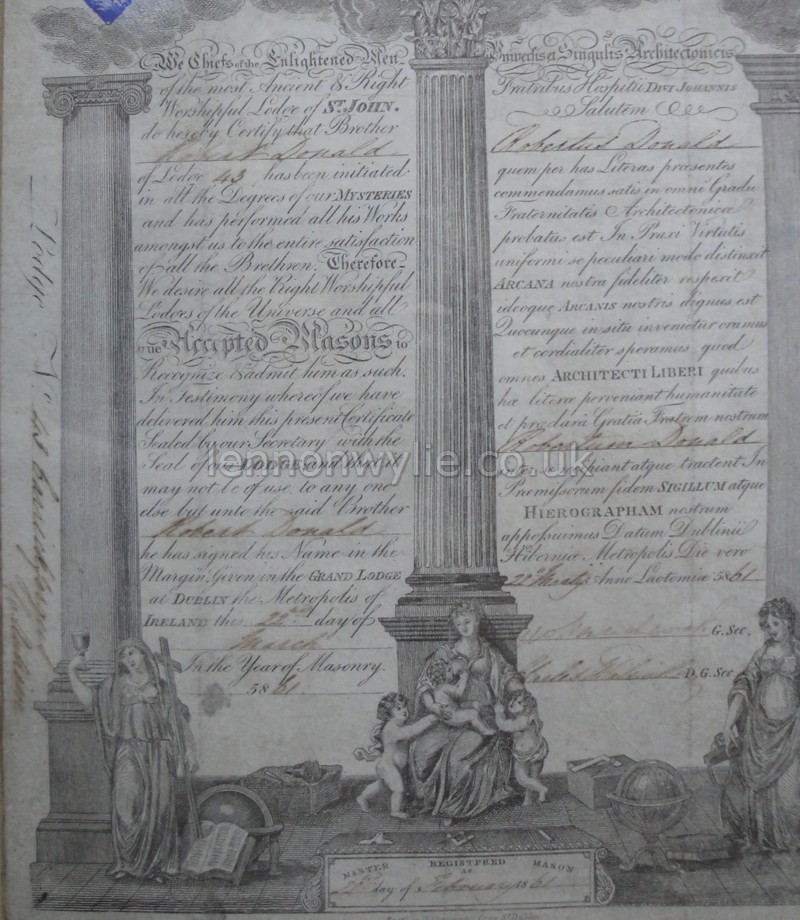 We Chiefs of the Enlightened Men
of the most Ancient & Right
Worshipful Lodge of ST. JOHN.
do hereby Certify that Brother
Robert Donald
of Lodge 43 has been initiated
in all the Degrees of our MYSTERIES
and has performed all his Works
amongst us to the entire satisfaction
of all the Brethren. Therefore
We desire all the Right Worshipful
Lodges of the Universe and all
true Accepted Masons to
Recognize & admit him as such.
In Testimony whereof we have
delivered him this present Certificate
Sealed by our Secretary with the
Seal of our LODGE and that it
may not be of use to any one
else but unto the said Brother
Robert Donald
he has signed his Name in the
Margin. Given in the GRAND LODGE
at DUBLIN the Metropolis of
IRELAND this 22nd day of
March
In the Year of Masonry.
5861
Universis et Singulis Architectonicis
Fratribus Hospitii DIVI JOHANNIS
Salutem
Robertus Donald
quem per has Literas præsentes
commendamus satis in omni Gradu
Fraternitatis Architectonicæ
probatus est In Praxi Virtutis
uniformi se peculiari modo distinxit
ARCANA nostra fideliter respexit
ideoque ARCANIS nostris dignus est
Quocunque in situ invenietur oramus
et cordialiter speramus quod
omnes ARCHITECTI LIBERI quibus
hæ literæ perveniant humanitate
et præclarâ Gratiâ Fratrem nostrum
Donald
recipiant atque tractent In
Præmissorum fidem SIGILLUM atque
HIEROGRAPHAM nostrum
appossuimus Datum Dublinii
Hiberniæ Metropolis Die vero
22 Anno Laotomiæ 5861
G. Sec.
D. G. Sec.
lennonwylie.co.uk
Lodge No
MASTER REGISTERED MASON
AS
day of February 1861